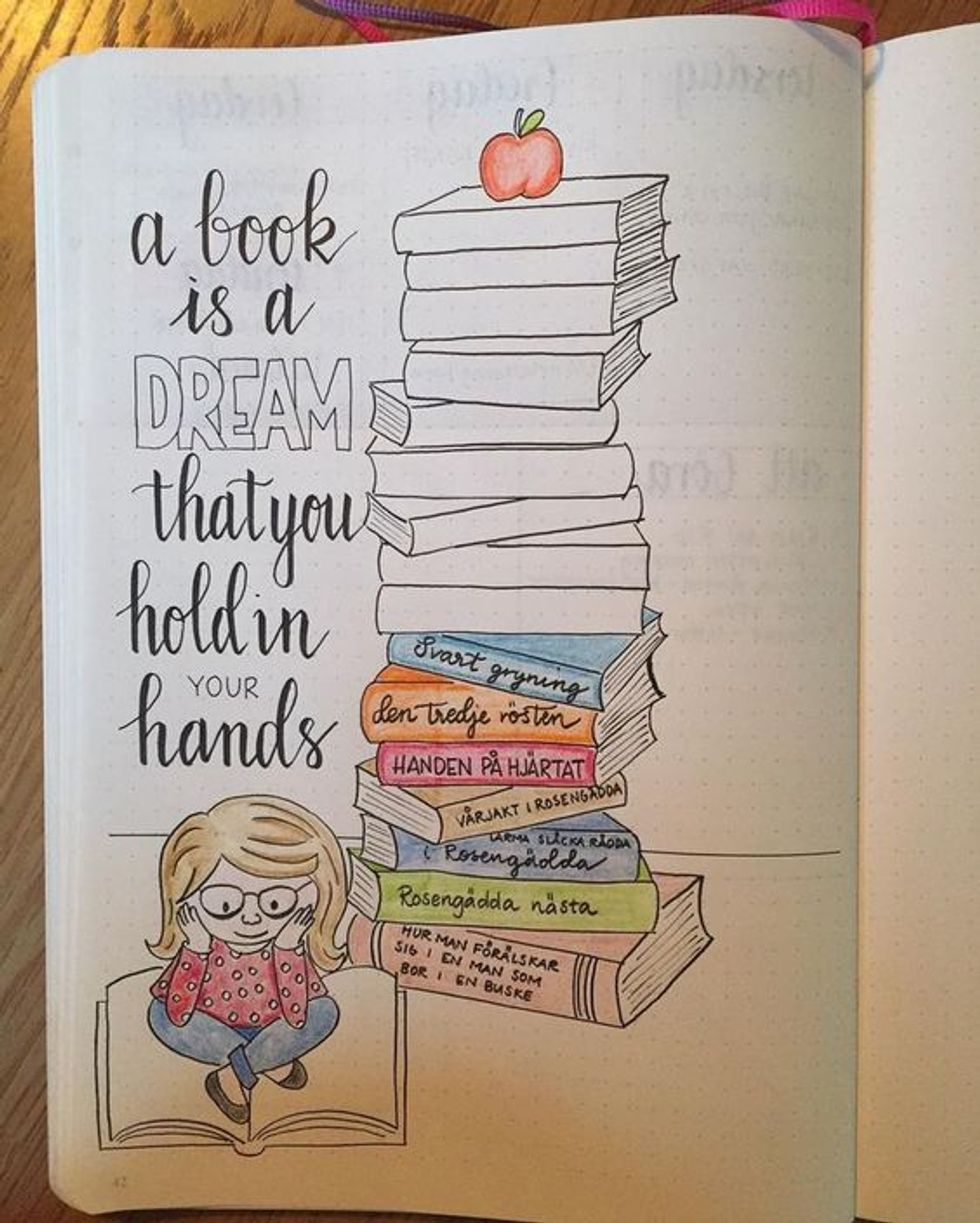 a book
is a
DREAM
that you
hold in
YOUR
hands
Svart gryning
den tredje rösten
HANDEN PÅ HJÄRTAT
VÅRJAKT I ROSENGÄDDA
LARMA SLÄCKA RÄDDA
i Rosengädda
Rosengädda nästa
HUR MAN FÖRÄLSKAR
SIG I EN MAN SOM
BOR I EN BUSKE
42